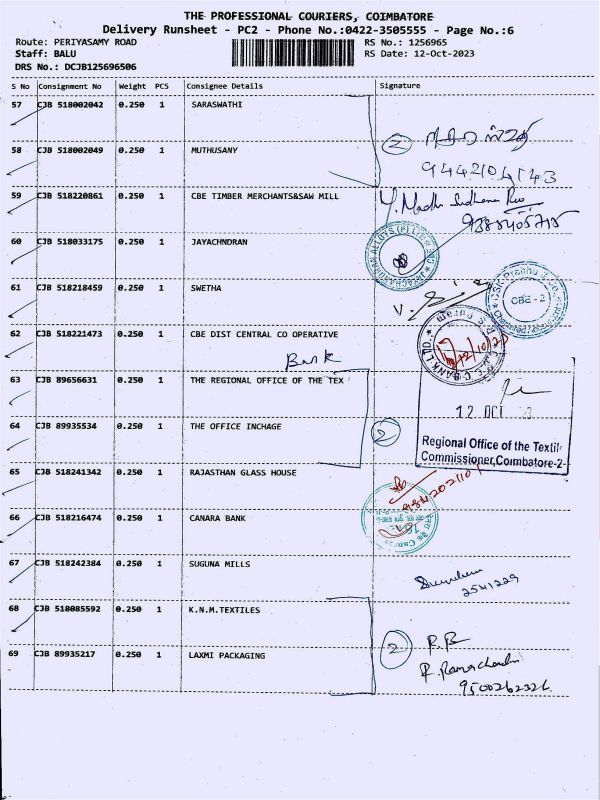 THE PROFESSIONAL COURIERS, COIMBATORE
Delivery Runsheet - PC2 - Phone No.:0422-3505555 - Page No.:6
Route: PERIYASAMY ROAD
RS No.: 1256965
Staff: BALU
RS Date: 12-Oct-2023
DRS No.: DCJB125696506
S No Consignment No Weight PCS Consignee Details Signature
57 CJB 518002042 0.250 1 SARASWATHI
58 CJB 518002049 0.250 1 MUTHUSANY
2
9442104143
59 CJB 518220861 0.250 1 CBE TIMBER MERCHANTS&SAW MILL
Y. Madhu Sudhana Rao
9388405715
60 CJB 518033175 0.250 1 JAYACHNDRAN
61 CJB 518218459 0.250 1 SWETHA
CBE - 2
62 CJB 518221473 0.250 1 CBE DIST CENTRAL CO OPERATIVE
Bank
12/10/23
63 CJB 89656631 0.250 1 THE REGIONAL OFFICE OF THE TEX
12 OCT
64 CJB 89935534 0.250 1 THE OFFICE INCHAGE
2
Regional Office of the Textile
Commissioner,Coimbatore-2
65 CJB 518241342 0.250 1 RAJASTHAN GLASS HOUSE
66 CJB 518216474 0.250 1 CANARA BANK
67 CJB 518242384 0.250 1 SUGUNA MILLS
2541229
68 CJB 518085592 0.250 1 K.N.M.TEXTILES
2
69 CJB 89935217 0.250 1 LAXMI PACKAGING
R. Ramachandran
9500262326